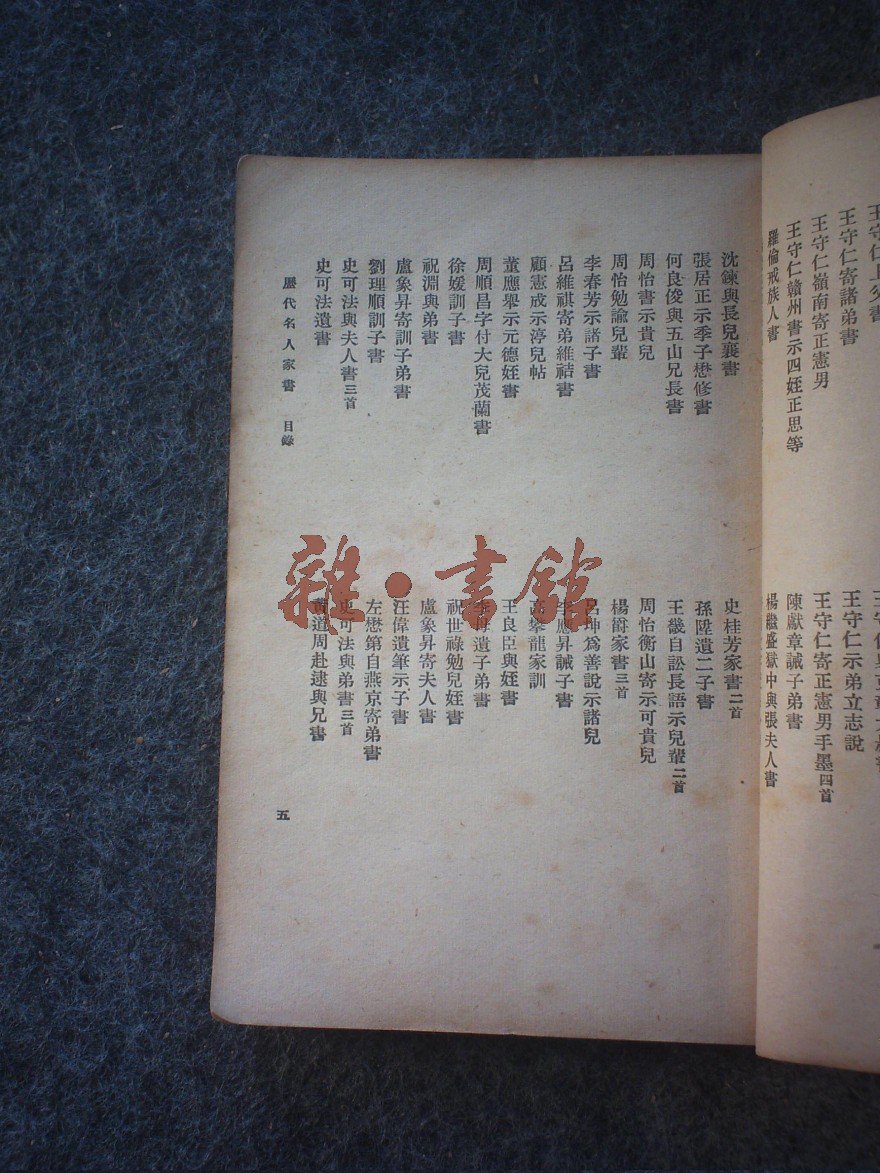 王守仁上父書
王守仁寄諸弟書
王守仁嶺南寄正憲男
王守仁贛州書示四姪正思等
羅倫戒族人書
王守仁示弟立志說
王守仁寄正憲男手墨四首
陳獻章誡子弟書
楊繼盛獄中與張夫人書
沈鍊與長兒襄書
張居正示季子懋修書
何良俊與五山兄長書
周怡書示貴兒
周怡勉諭兒輩
李春芳示諸子書
呂維祺寄弟維祮書
顧憲成示淳兒帖
董應舉示元德姪書
周順昌字付大兒茂蘭書
徐媛訓子書
祝淵與弟書
盧象昇寄訓子弟書
劉理順訓子書
史可法與夫人書三首
史可法遺書
史桂芳家書二首
孫陞遺二子書
王畿自訟長語示兒輩二首
周怡衡山寄示可貴兒
楊爵家書三首
呂坤為善說示諸兒
李應昇誡子書
高攀龍家訓
王良臣與姪書
遺子弟書
祝世祿勉兒姪書
盧象昇寄夫人書
汪偉遺筆示子書
左懋第自燕京寄弟書
史可法與弟書三首
黃道周赴逮與兄書
歷代名人家書 目錄
五
雜·書館